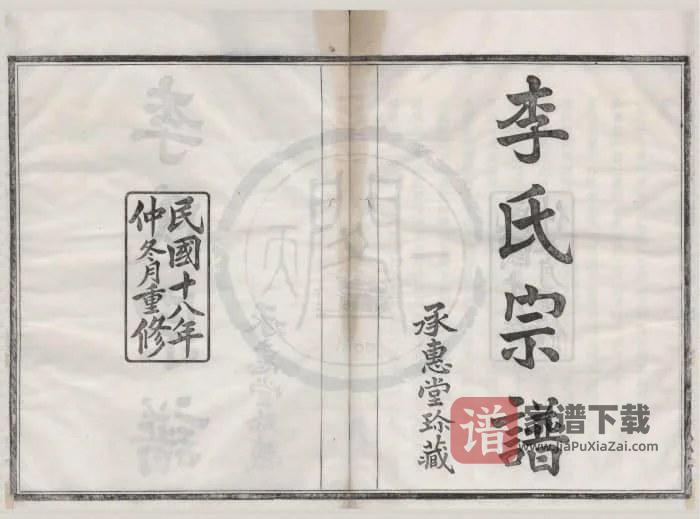 李氏宗譜
承惠堂珍藏
民國十八年
仲冬月重修
谱
家谱下载
www.JiaPuXiaZai.com